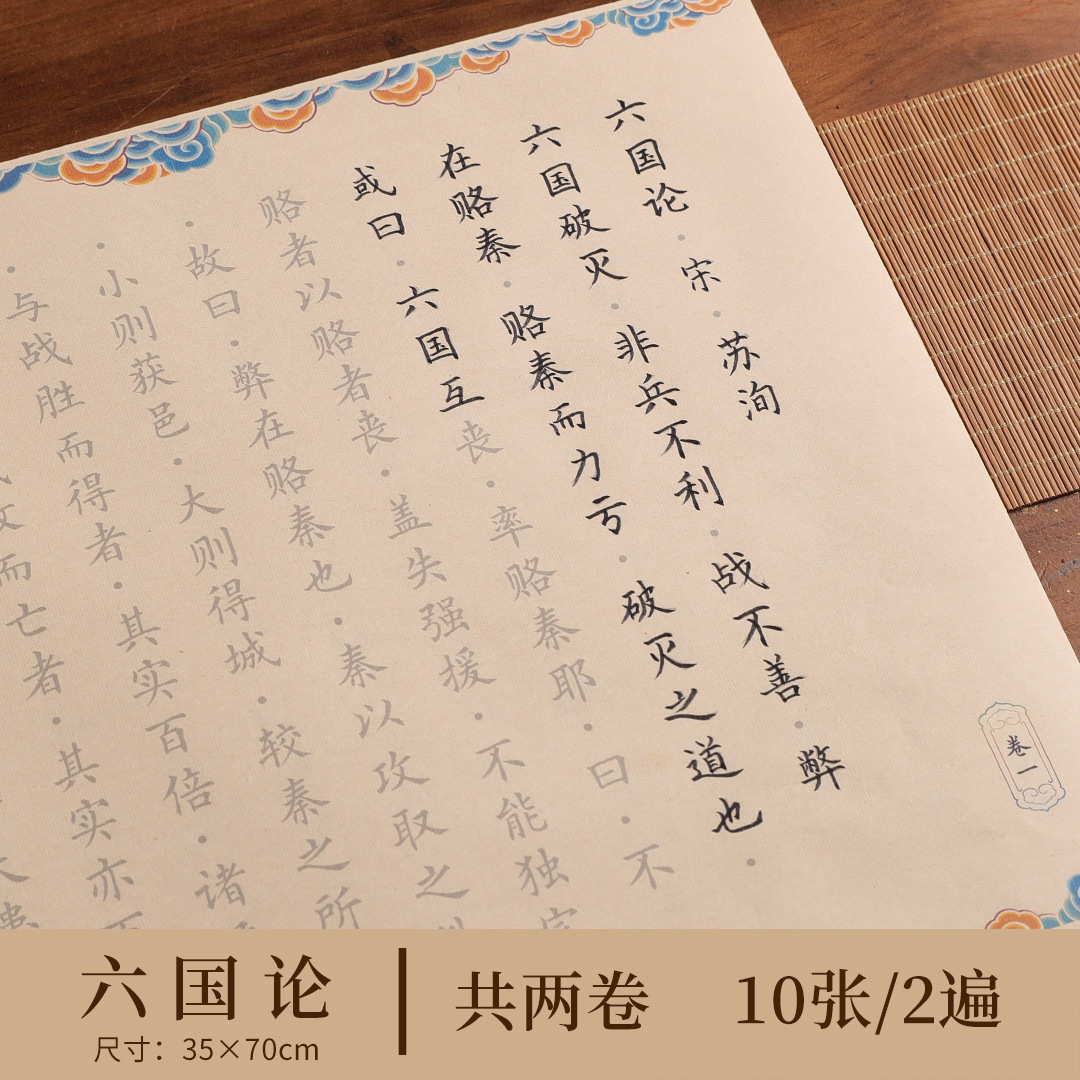 六国论·宋·苏洵
六国破灭·非兵不利·战不善·弊
在赂秦·赂秦而力亏·破灭之道也·
或曰·六国互丧·率赂秦耶·曰·不
赂者以赂者丧·盖失强援·不能独
·故曰·弊在赂秦也·秦以攻取之
·小则获邑·大则得城·较秦之所
·与战胜而得者·其实百倍·诸
而亡者·其实亦
患
卷一
六国论
尺寸：35×70cm
共两卷 10张/2遍